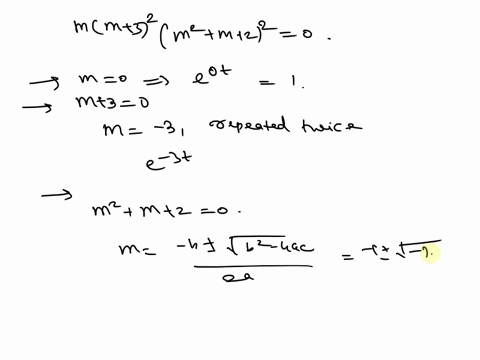 m(m+3)² (m²+m+2)² = 0 .
→ m=0 ⇒ e^0t = 1.
→ m+3=0
m = -3, repeated twice
e^-3t
→
m²+m+2 = 0.
m = -b ± √b²-4ac / 2a = -1 ± √-7